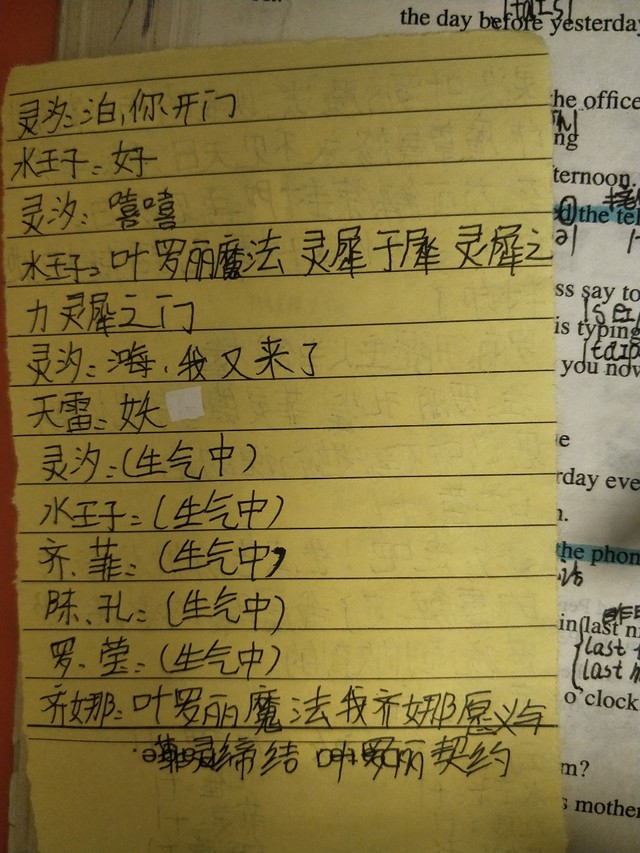 the day before yesterday
灵汐:泊,你开门
he office
ng
水王子:好
ternoon.
灵汐:嘻嘻
the tel
水王子:叶罗丽魔法 灵犀于犀 灵犀之
力灵犀之门
ss say to
is typing
灵汐:海,我又来了
you nov
天雷:妖
e
灵汐:(生气中)
rday eve
水王子:(生气中)
n.
齐.菲:(生气中)
the phon
陈、孔:(生气中)
in last n
last
last
罗、莹:(生气中)
o'clock
齐娜:叶罗丽魔法我齐娜愿义与
灵缔结 叶罗丽契约
m?
s mother